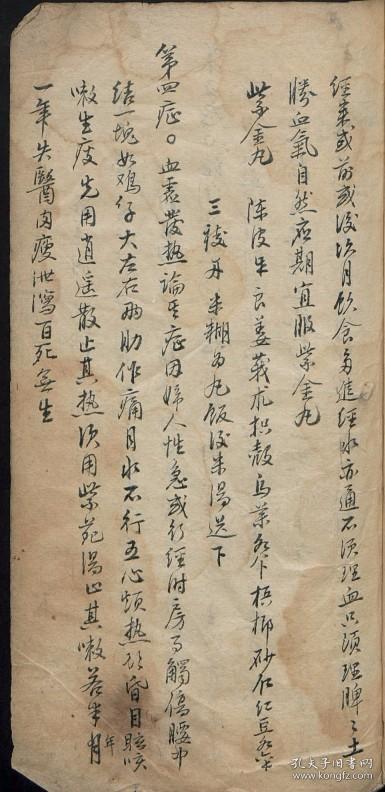 經來或前或後次月飲食多進經水亦通不須理血只須理脾之土
勝血氣自然应期宜服紫金丸
紫金丸 陈皮 良姜莪朮枳殼烏葉 梹榔砂仁红豆
三稜 米糊為丸飯後米湯送下
第四症。血虛發热論其症因婦人性急或行經时房事觸傷腰中
结一塊如鸡仔大左右兩肋作痛月水不行五心煩热 昏目眩咳
嗽生痰先用逍遥散止其热次用紫菀湯止其嗽若半月年
一年失醫肉瘦泄瀉百死無生
孔夫子旧书网
www.kongfz.com